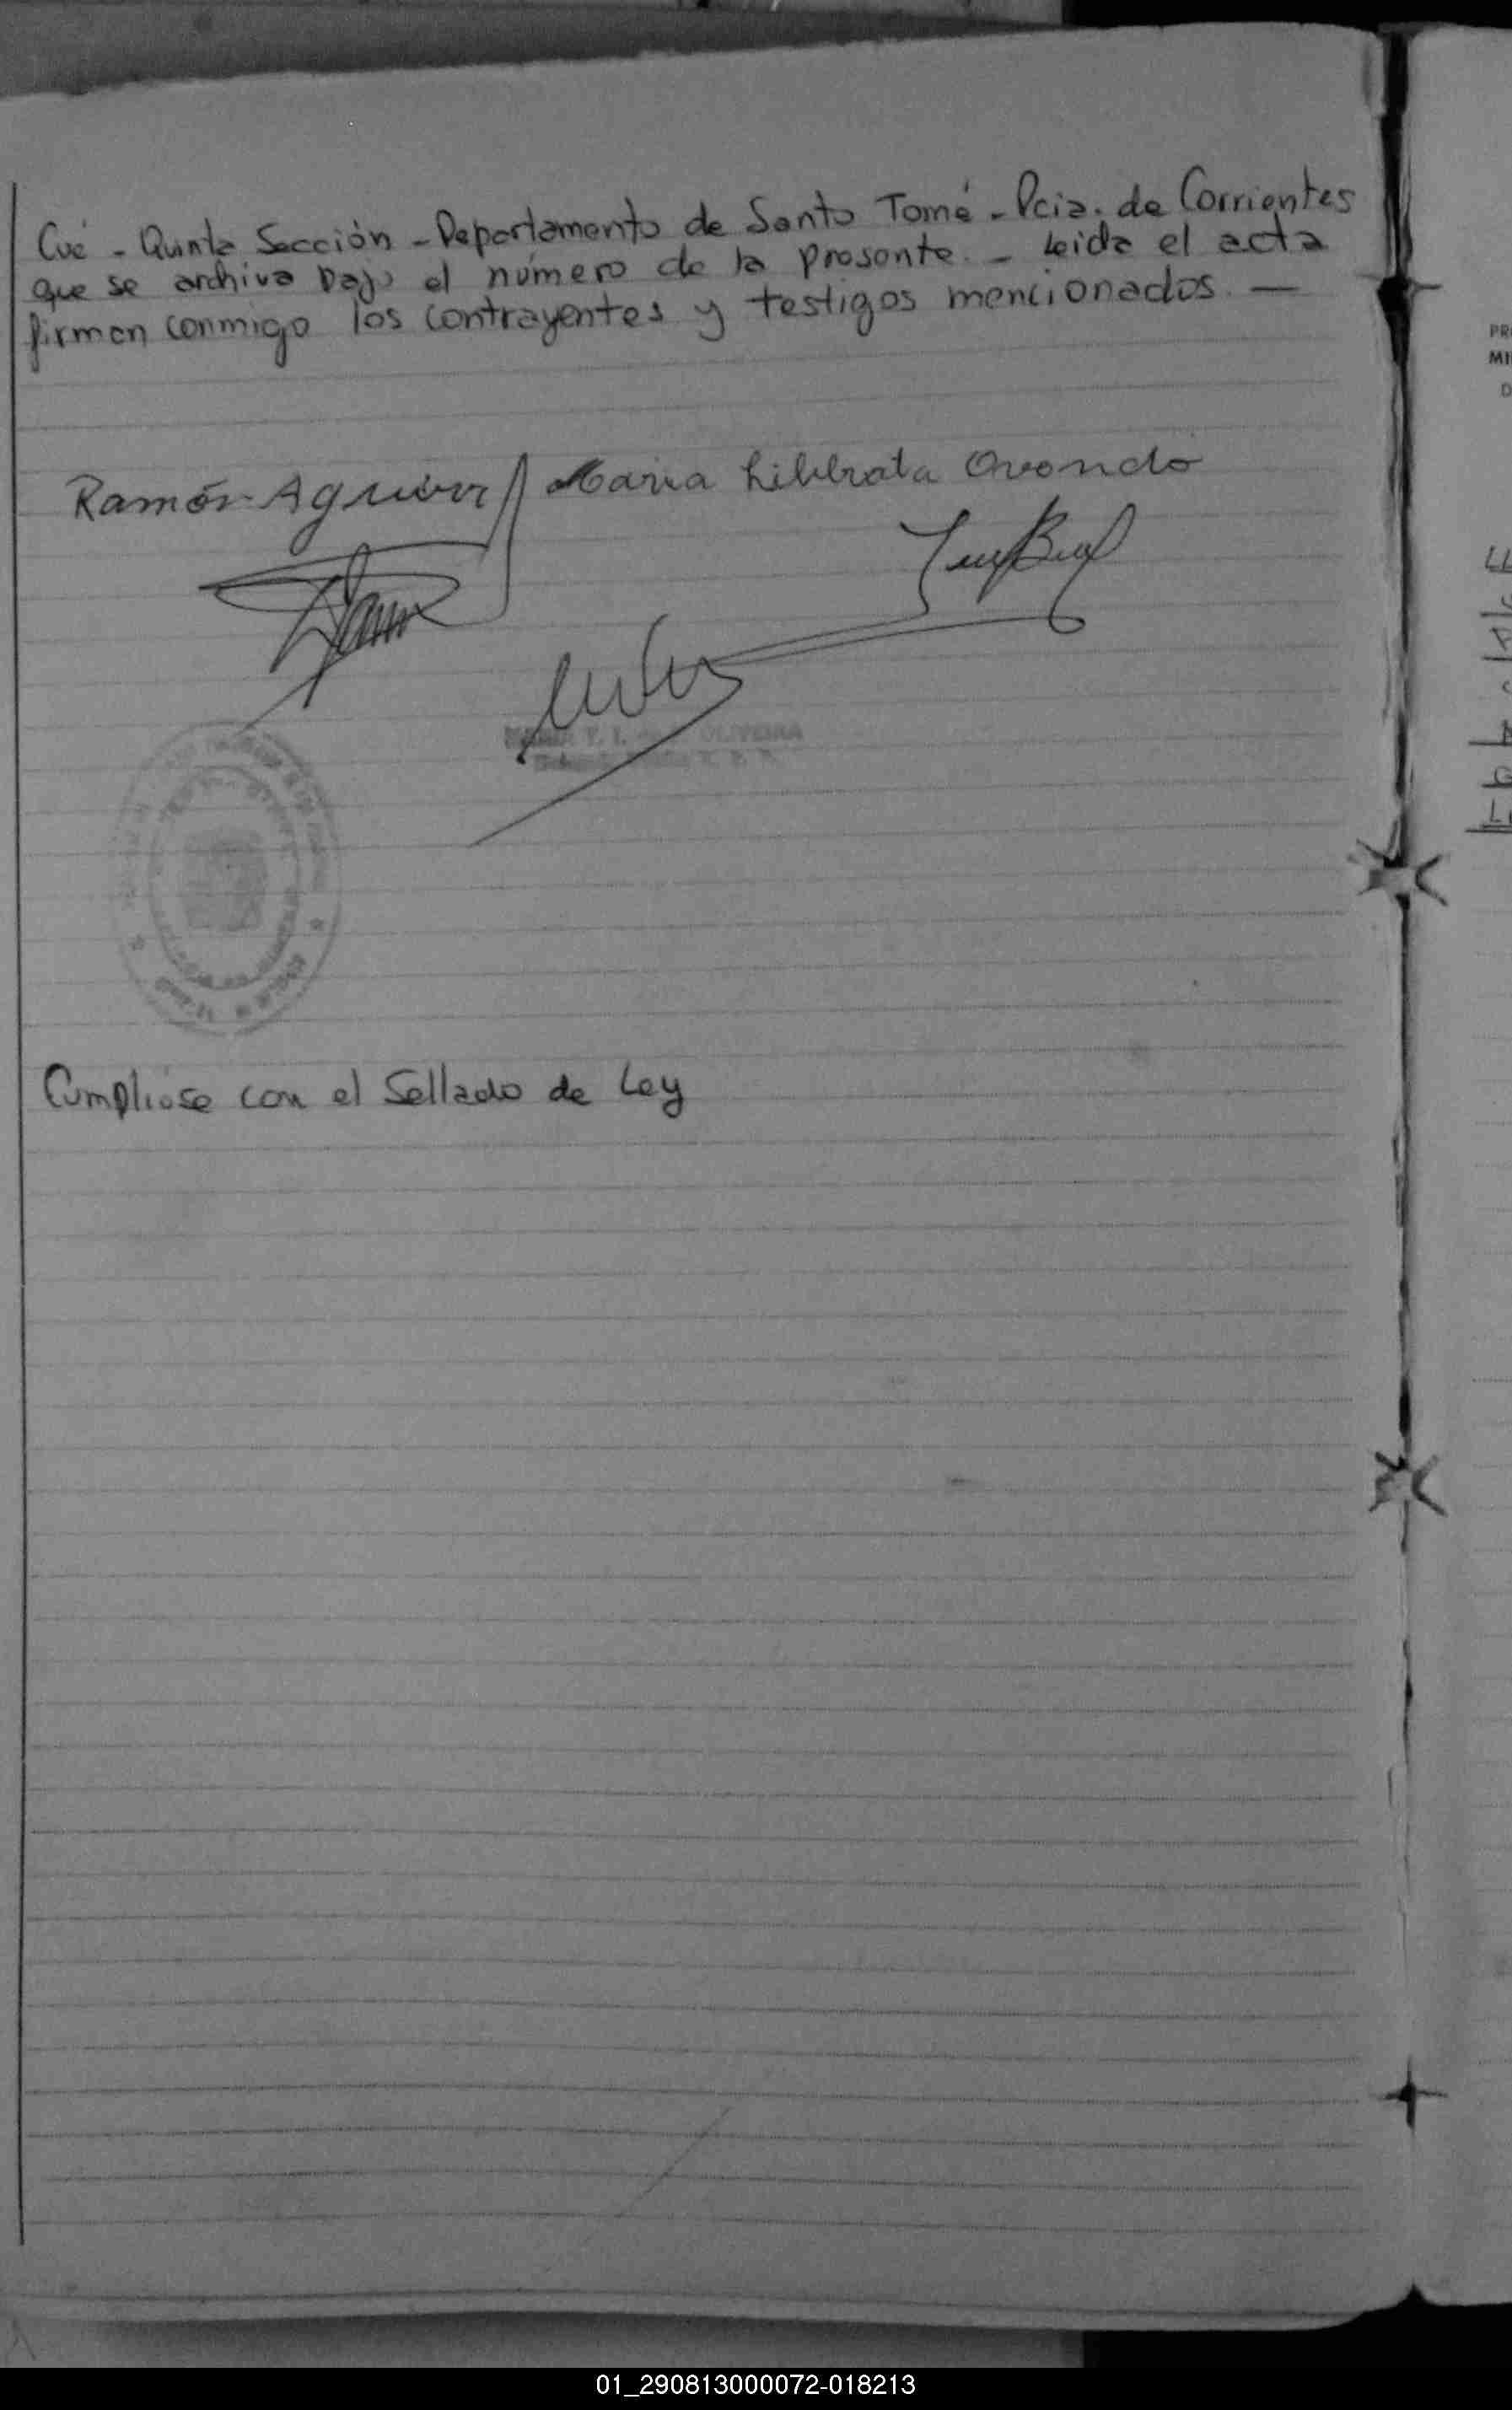 Cué - Quinta Sección - Departamento de Santo Tomé - Pcia. de Corrientes
que se archiva bajo el número de la presente. - Leida el acta
firman conmigo los contrayentes y testigos mencionados. —
Ramón Aguirre Maria Liberata Ovando
MARIA T. I. OLIVEIRA
Cumplióse con el Sellado de Ley
01_290813000072-018213